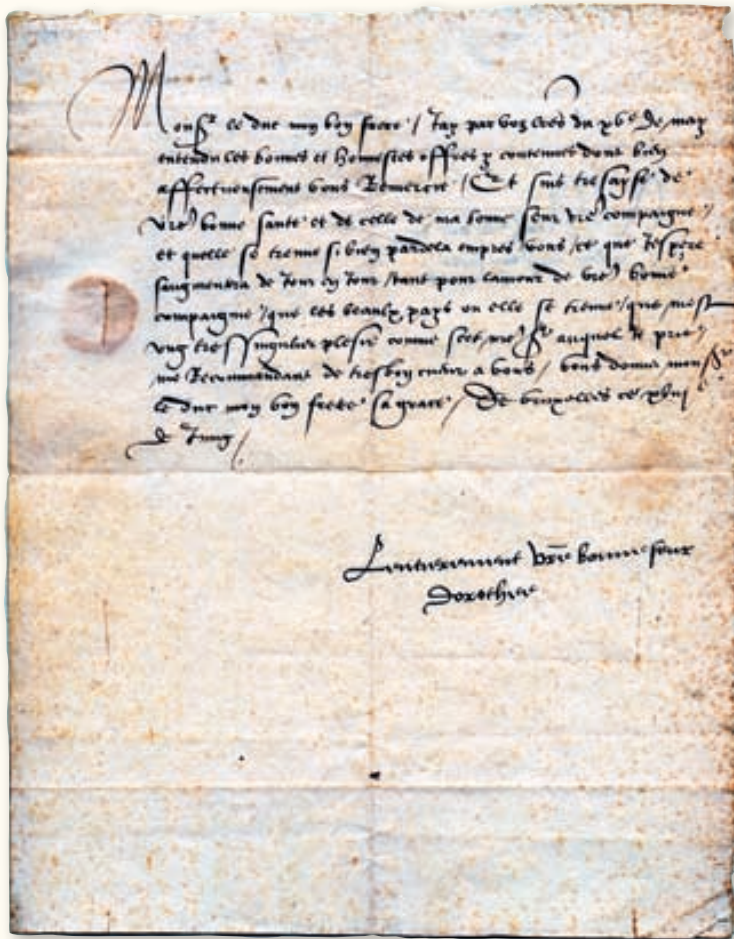 Monsr le duc mon bon frere / Jay par voz lres du xve de may
entendu les bonnes et honnestes offres y contenues dont bien
affectueusement vous Remercie / Et suis tresayse de
vre bonne sante et de celle de ma bonne seur vre compaigne /
et quelle se treuue si bien pardela empres vous / ce que Jespere
saugmentra de Jour en Jour / tant pour lamour de vre bonne
compaignie / que les beaulx pays ou elle se treuue / que mest
vng tressingulier plesir comme scet nre sr auquel Je prie /
me Recommandant de tresbon cueur a vous / vous donner monsr
le duc mon bon frere sa grace / De bruxelles ce
de Juing /
Lentierement vre bonne seur
Dorothee